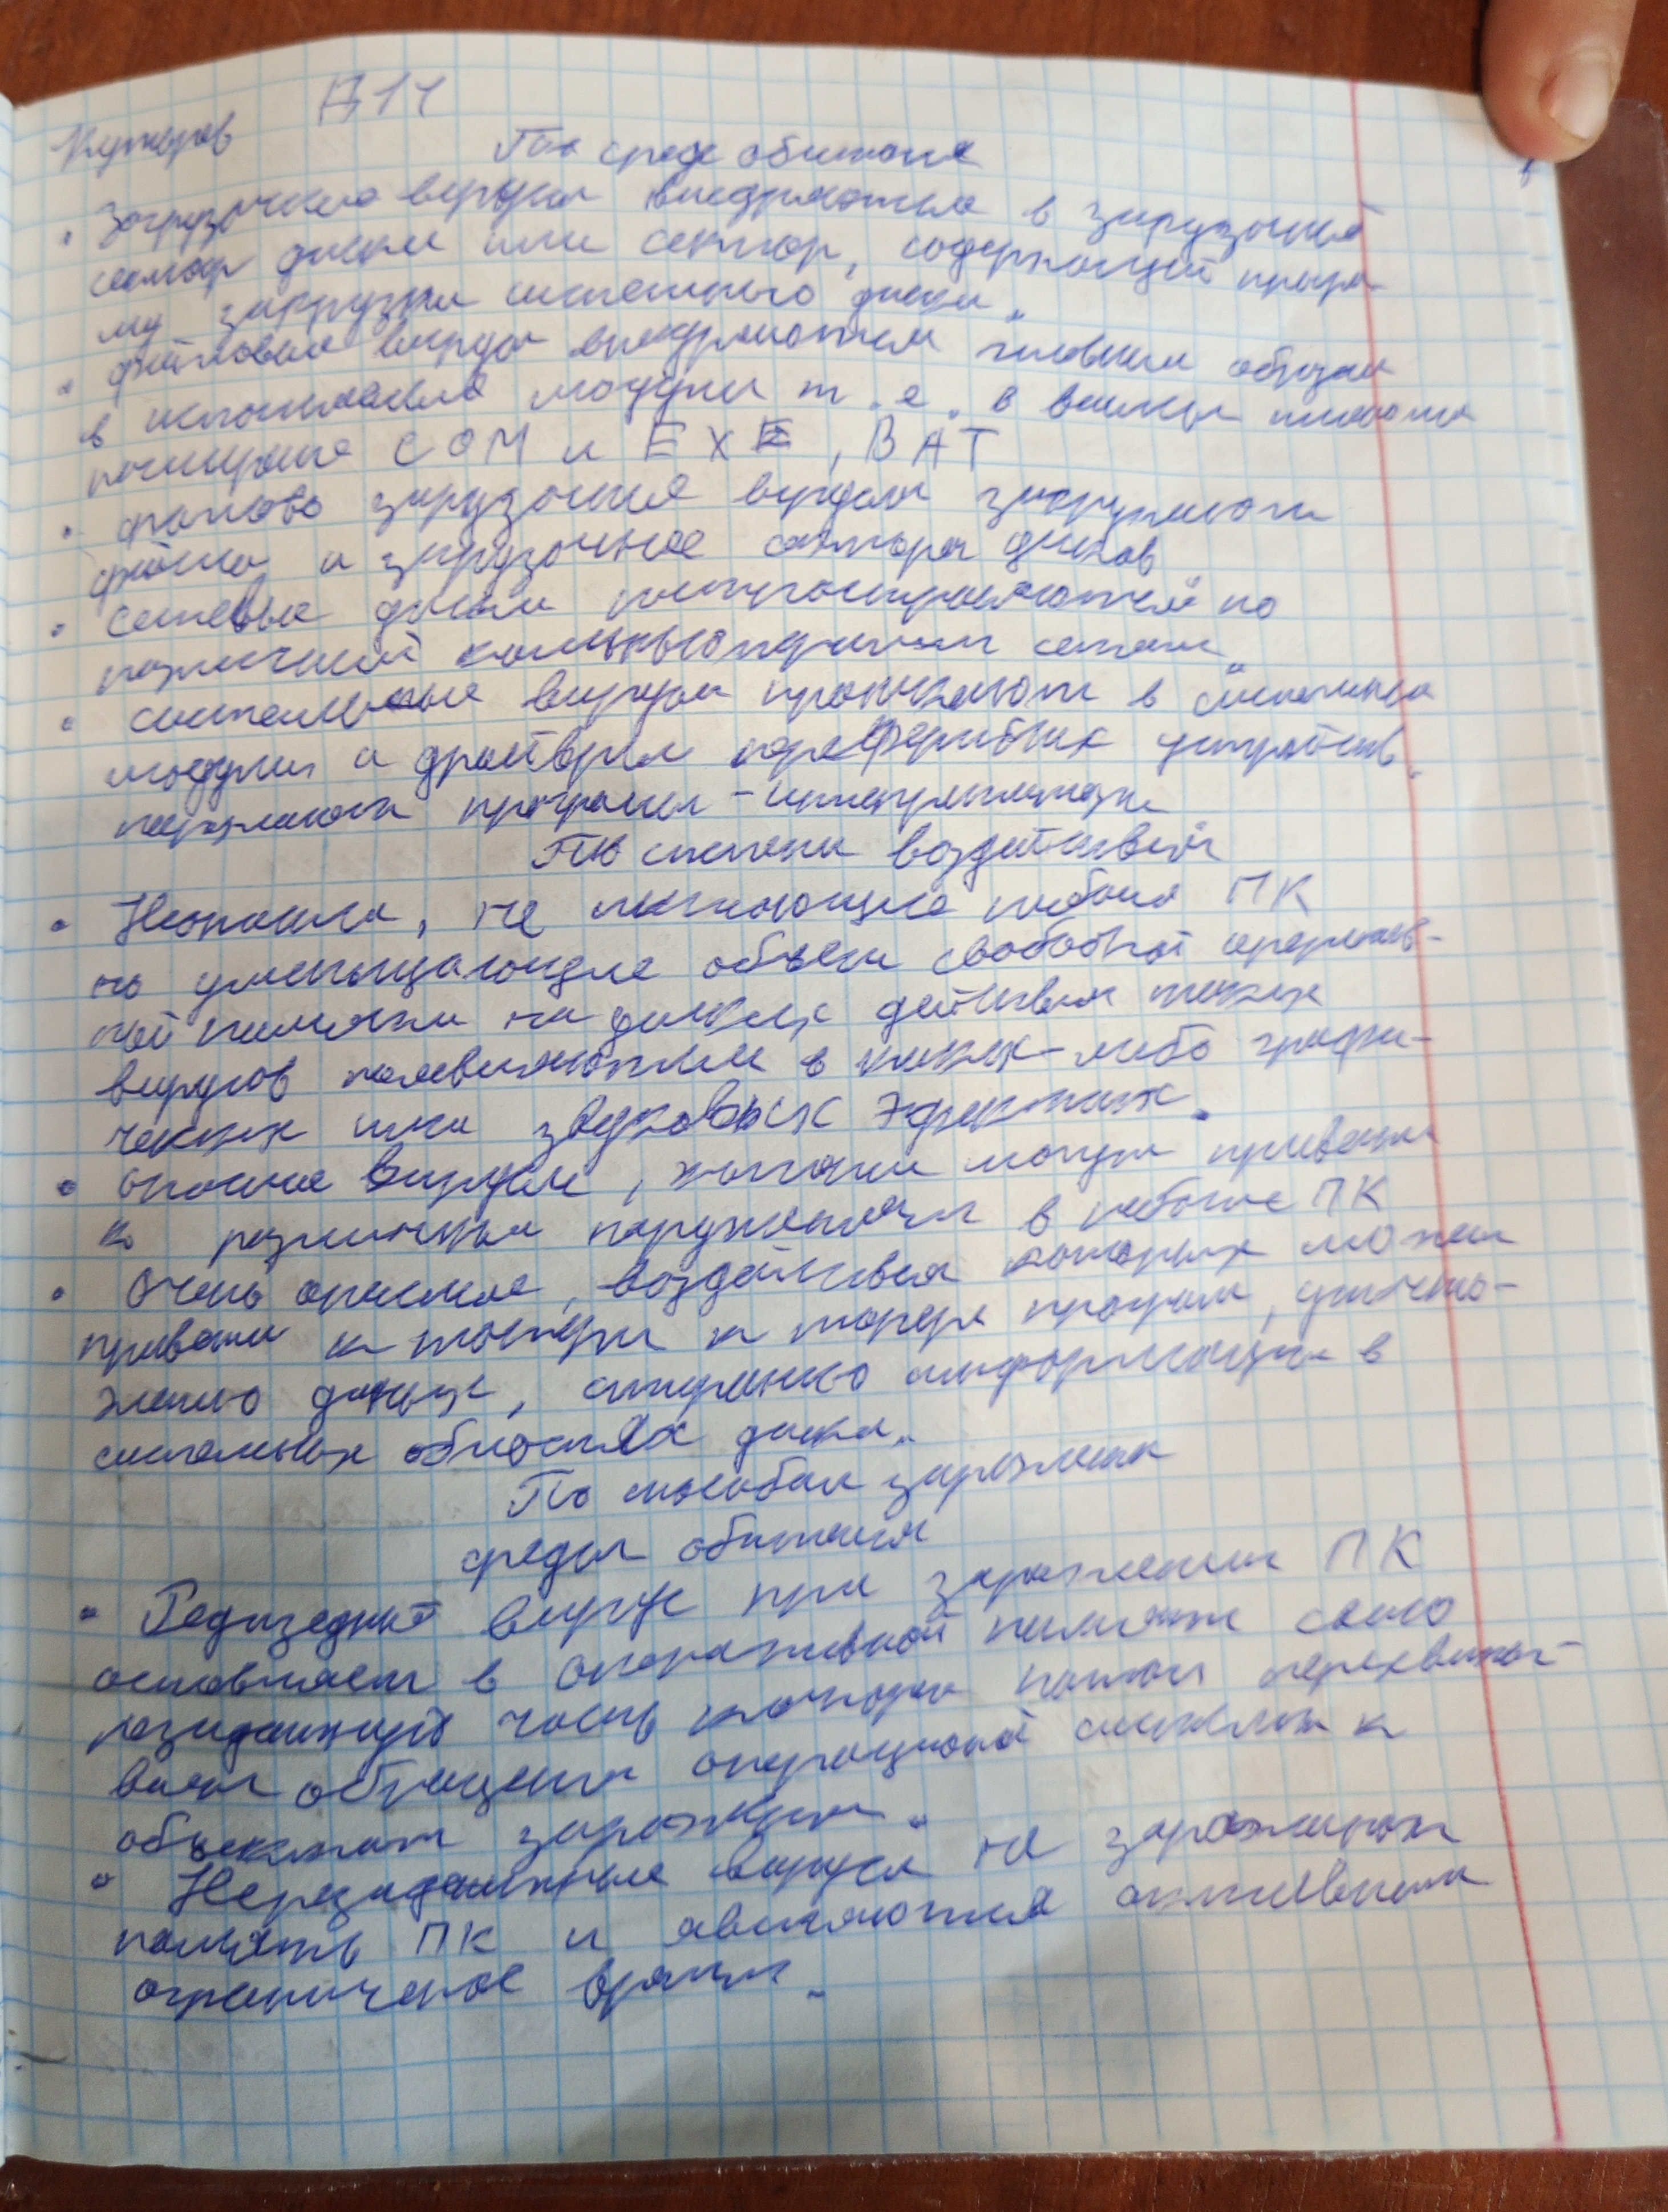 П14
По среде обитания
• Загрузочные вирусы внедряются в загрузочный
сектор диска или сектор, содержащий програ
му загрузки системного диска.
• файловые вирусы внедряются главным образом
в исполняемые модули т.е. в
расширение COM и EXE, BAT
• файлово загрузочные вирусы заражают
файлы и загрузочные сектора дисков
• сетевые диски распространяются по
различной компьютерным сетям.
• системные вирусы проникают в системные
модули и драйверы переферийных устройств.
поражают програмы-интерпретаторы
По степени воздействия
• Неопасные, не мешающие работе ПК
но уменьшающие объем свободной оператив-
ной памяти на дисках действия таких
вирусов появляются в каких-либо графи-
ческих или звуковых эфектах.
• опасные вирусы, которые могут привести
к различным нарушениям в работе ПК
• Очень опасные, воздействия которых может
привести к потери к потере програм, уничто-
жению данных, стиранию информации в
системных областях диска.
По способам заражения
среды обитания
• вирус при заражении ПК
оставляет в оперативной памяти свою
резидентную часть которая потом перехваты-
вает обращения операционной системы к
объектам заражения.
• Нерезидентные вирусы не заражают
память ПК и являются активными
ограниченое время.